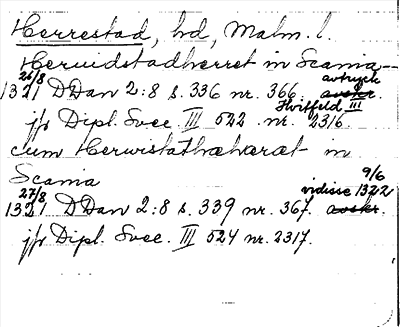 Herrestad, hd, Malm. l.
Heruidstadherret in Scania —
26/8 avtryck
1321 DDan 2:8 s. 336 nr. 366. avskr.
Hvitfeld III
jfr Dipl. Svec. III 522 nr. 2316.
cum Herwistathæhæræt in
Scania
27/8 vidisse 9/6 1322
1321 DDan 2:8 s. 339 nr. 367. avskr.
jfr Dipl. Svec. III 524 nr. 2317.